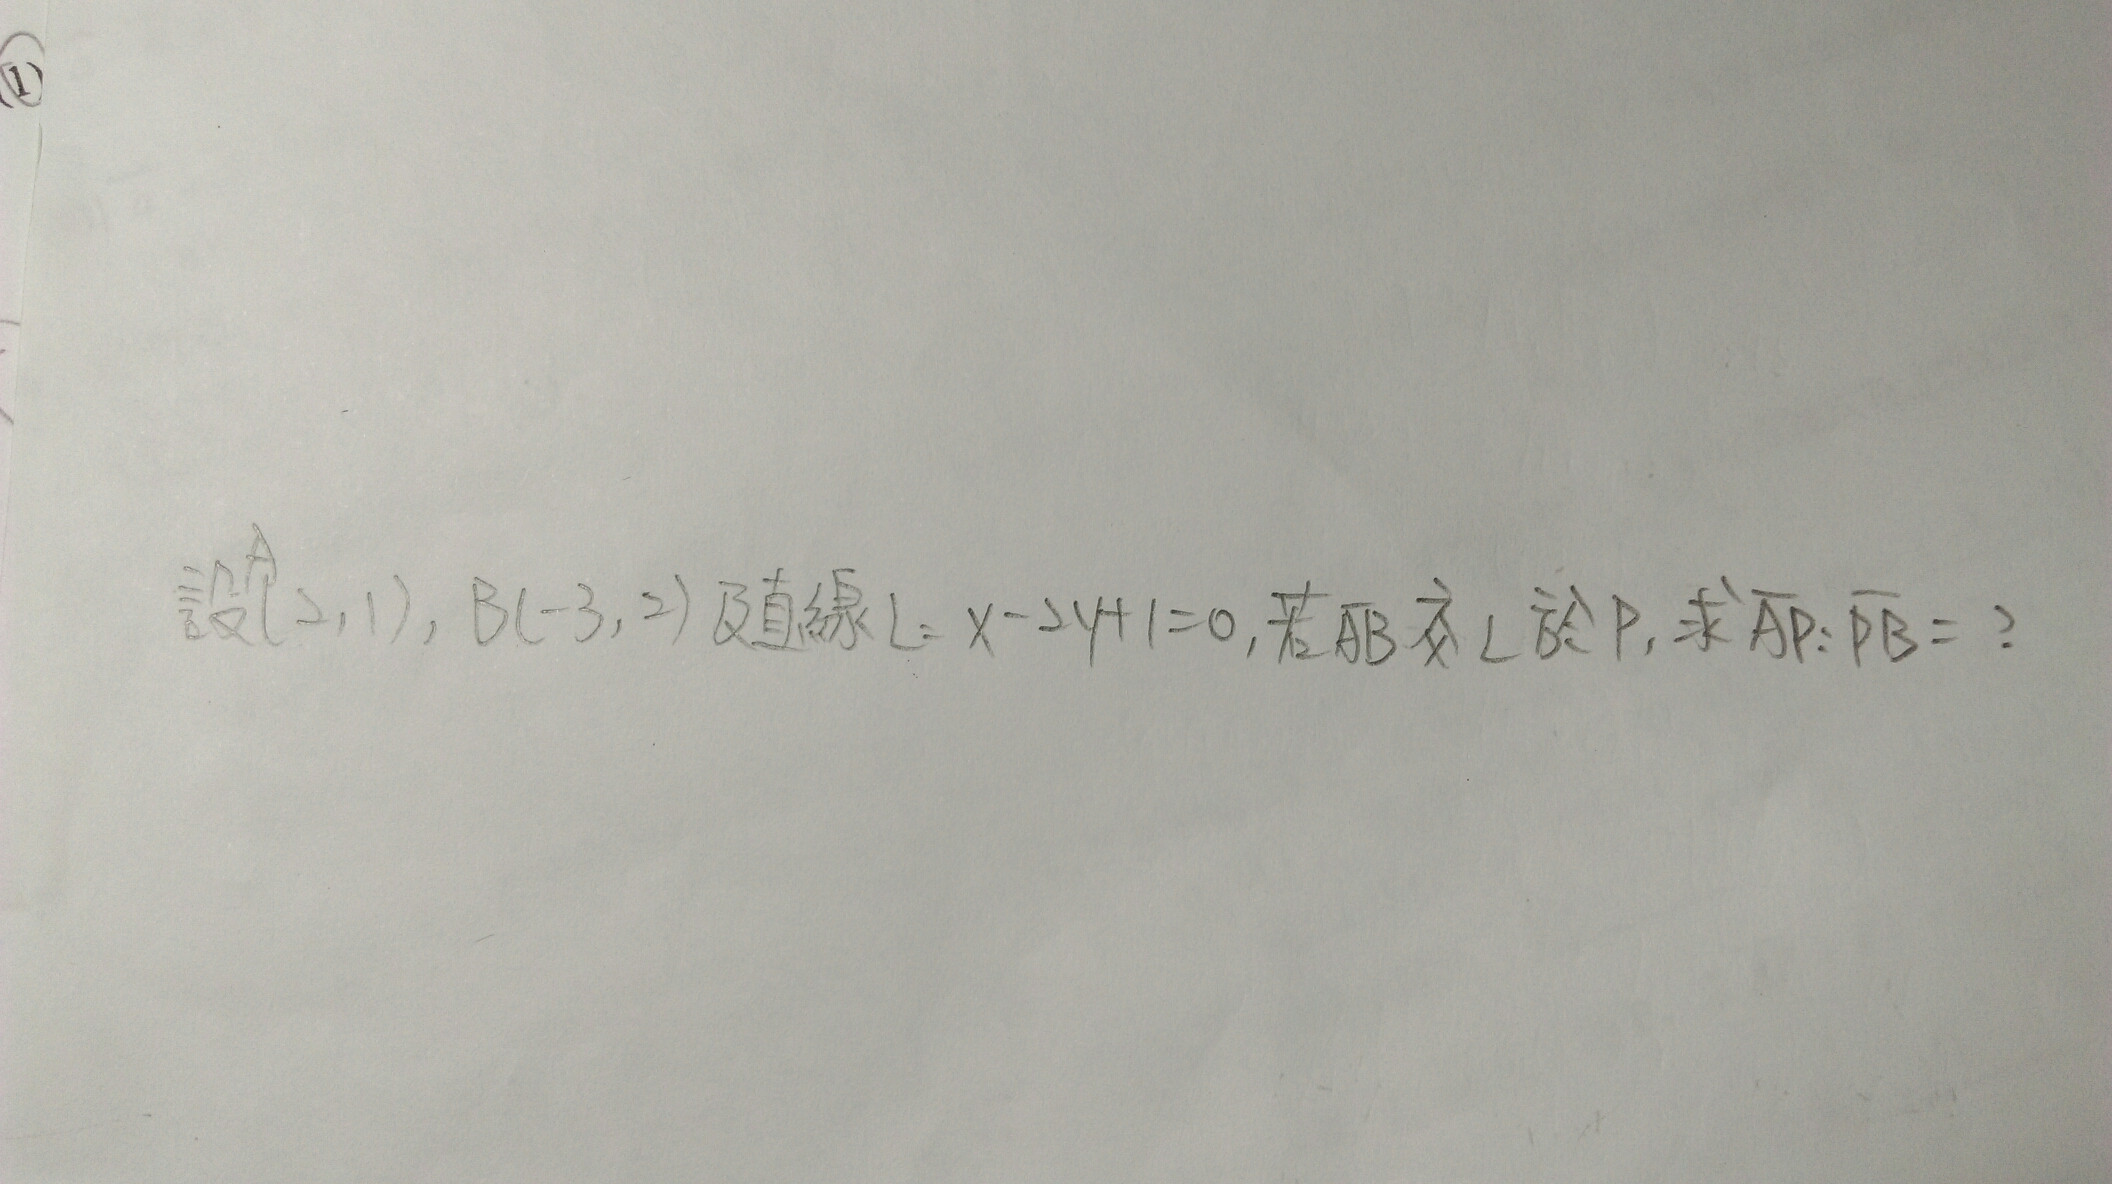 (1)
設A(2,1), B(-3,2)及直線L: x-2y+1=0,若A̅B̅交L於P, 求A̅P̅:P̅B̅=?